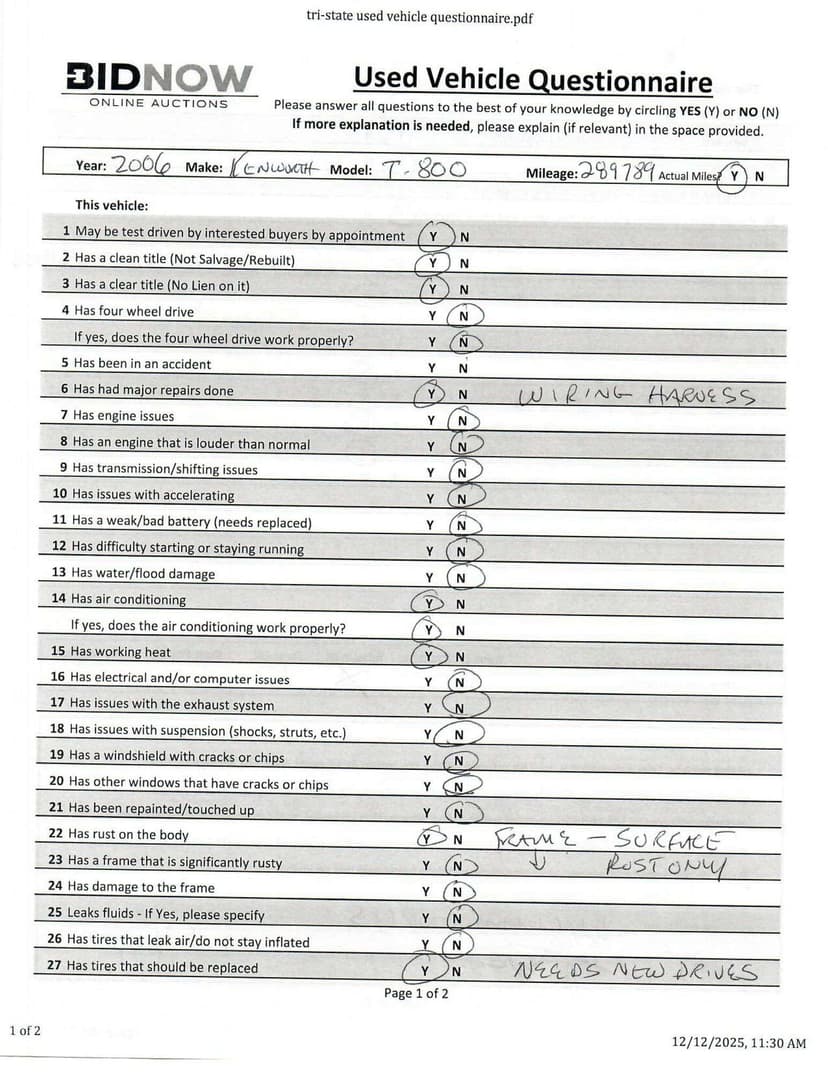 tri-state used vehicle questionnaire.pdf
BIDNOW
ONLINE AUCTIONS
Used Vehicle Questionnaire
Please answer all questions to the best of your knowledge by circling YES (Y) or NO (N)
If more explanation is needed, please explain (if relevant) in the space provided.
Year: 2006 Make: KENWORTH Model: T-800 Mileage: 289789 Actual Miles? Y N
This vehicle:
1 May be test driven by interested buyers by appointment Y N
2 Has a clean title (Not Salvage/Rebuilt) Y N
3 Has a clear title (No Lien on it) Y N
4 Has four wheel drive Y N
If yes, does the four wheel drive work properly? Y N
5 Has been in an accident Y N
6 Has had major repairs done Y N WIRING HARNESS
7 Has engine issues Y N
8 Has an engine that is louder than normal Y N
9 Has transmission/shifting issues Y N
10 Has issues with accelerating Y N
11 Has a weak/bad battery (needs replaced) Y N
12 Has difficulty starting or staying running Y N
13 Has water/flood damage Y N
14 Has air conditioning Y N
If yes, does the air conditioning work properly? Y N
15 Has working heat Y N
16 Has electrical and/or computer issues Y N
17 Has issues with the exhaust system Y N
18 Has issues with suspension (shocks, struts, etc.) Y N
19 Has a windshield with cracks or chips Y N
20 Has other windows that have cracks or chips Y N
21 Has been repainted/touched up Y N
22 Has rust on the body Y N FRAME - SURFACE
23 Has a frame that is significantly rusty Y N ↓ RUST ONLY
24 Has damage to the frame Y N
25 Leaks fluids - If Yes, please specify Y N
26 Has tires that leak air/do not stay inflated Y N
27 Has tires that should be replaced Y N NEEDS NEW DRIVES
Page 1 of 2
1 of 2
12/12/2025, 11:30 AM